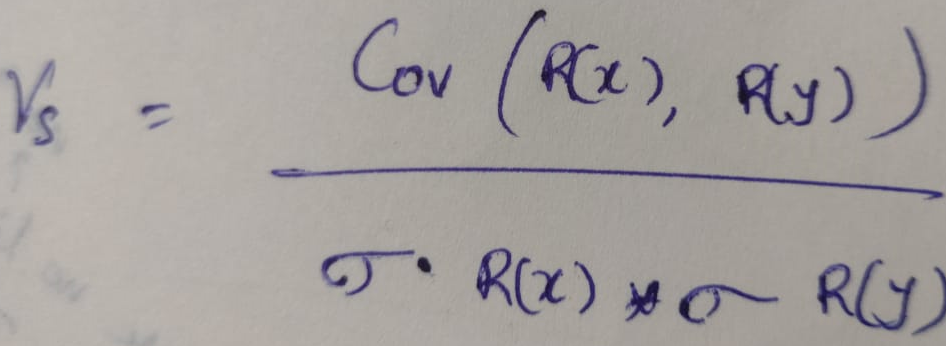 r_s = Cov (R(x), R(y))
σ· R(x) * σ R(y)